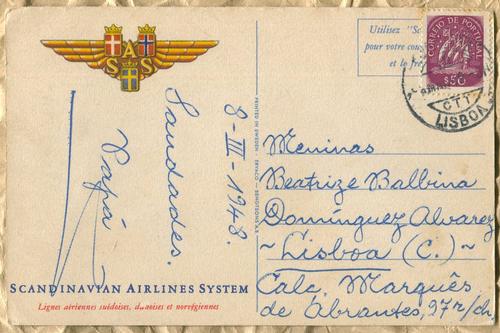 Utilisez "Sc
pour votre cou
et le fre
CORREIO DE PORTUGAL
$50
CTT
LISBOA
S A S
8-III-1948.
Saudades.
Papá
PRINTED IN SWEDEN
Meninas
Beatrize Balbina
Domínguez Alvarez
- Lisboa (C.) -
Calc. Marquês
de Abrantes, 97 r/ch.
SCANDINAVIAN AIRLINES SYSTEM
Lignes aériennes suédoises, danoises et norvégiennes